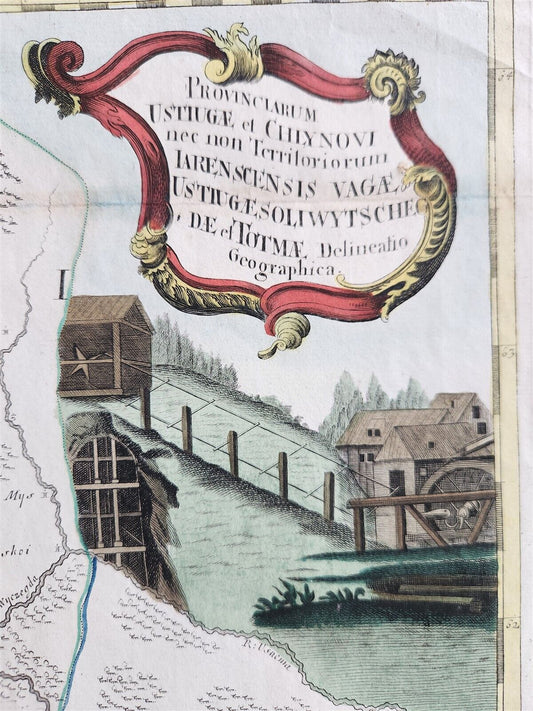 PROVINCIARUM
USTIUGÆ et CHLYNOVI
nec non Territoriorum
IARENSCENSIS VAGÆ
USTIUGÆ, SOLIWYTSCHEG
DÆ et TOTMÆ Delineatio
Geographica.
64
I
63
Mys
skoi
Wyczegda
62